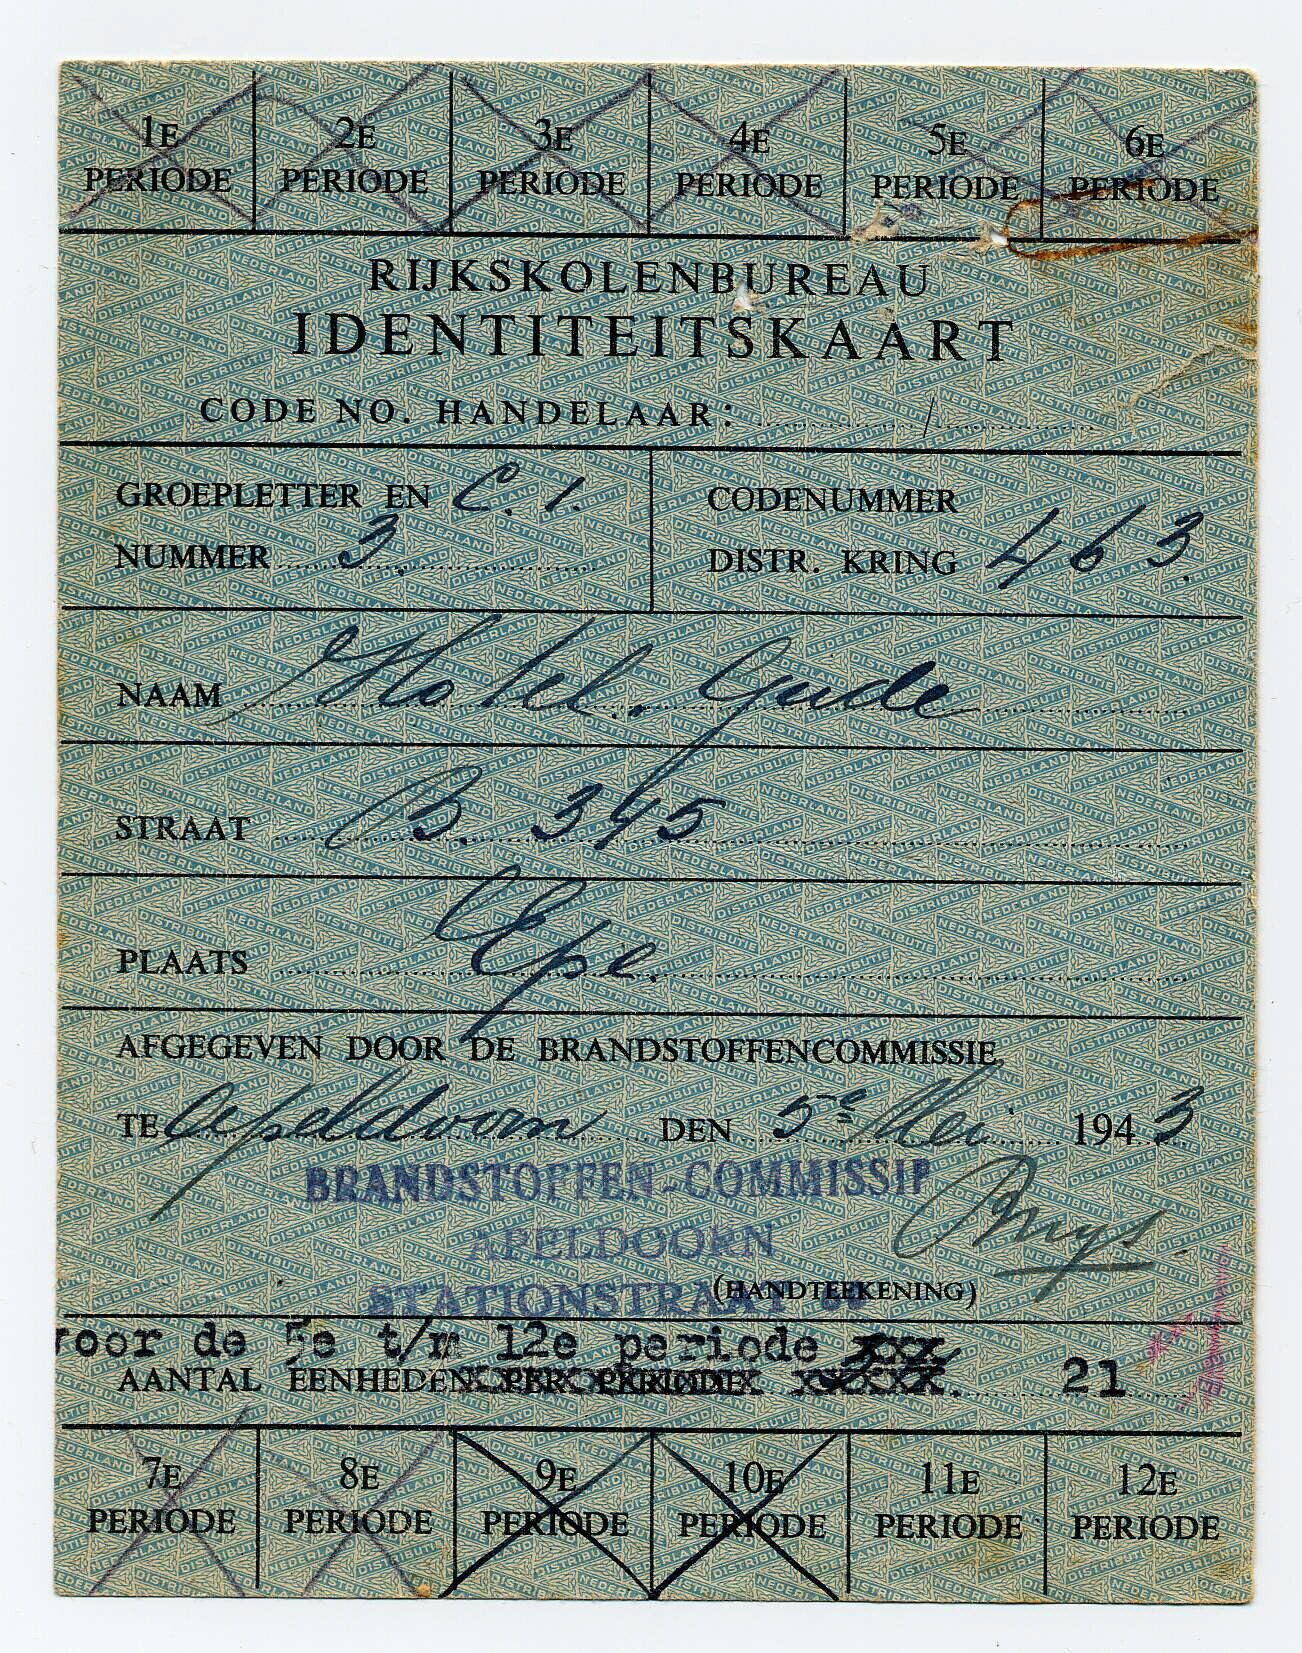 1E PERIODE 2E PERIODE 3E PERIODE 4E PERIODE 5E PERIODE 6E PERIODE
RIJKSKOLENBUREAU
IDENTITEITSKAART
CODE NO. HANDELAAR: /
GROEPLETTER EN C. 1.
NUMMER 3.
CODENUMMER
DISTR. KRING 463.
NAAM Hotel. Gude
STRAAT B. 345
PLAATS Epe.
AFGEGEVEN DOOR DE BRANDSTOFFENCOMMISSIE
TE Apeldoorn DEN 5e Mei 1943
BRANDSTOFFEN-COMMISSIE
APELDOORN
STATIONSTRAAT
(HANDTEEKENING)
voor de 5e t/m 12e periode xxx
AANTAL EENHEDEN PER PERIODE 21
7E PERIODE 8E PERIODE 9E PERIODE 10E PERIODE 11E PERIODE 12E PERIODE